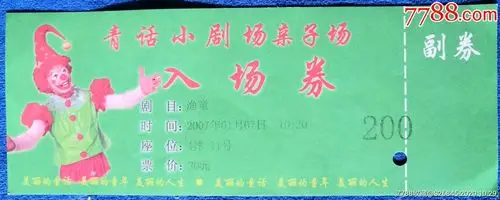 7788.com
青话小剧场亲子场
副券
入场券
剧 目：渔童
时 间：2007年 10:30
座 位：
票 价：
200
美丽的童话 美丽的童年 美丽的人生 美丽的童话 美丽的童年 美丽的人生